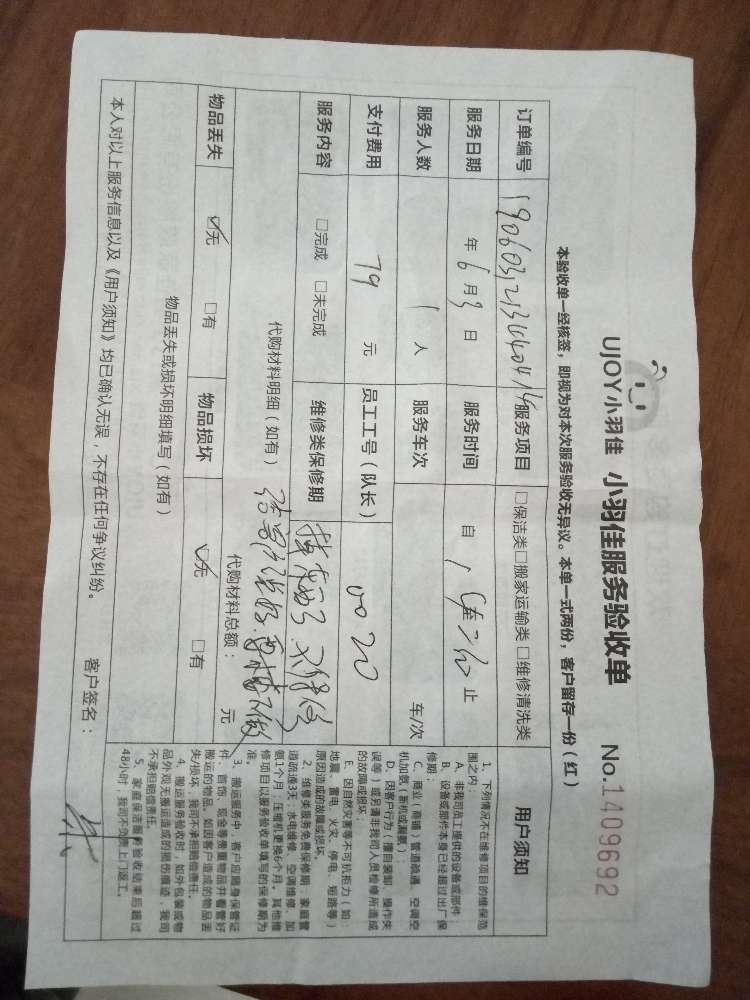 UJOY小羽佳 小羽佳服务验收单 No.1409692
本验收单一经核签，即视为对本次服务验收无异议。本单一式两份，客户留存一份（红）
订单编号 服务项目 □保洁类□搬家运输类□维修清洗类
服务日期 年 6 月 3 日 服务时间 自 止
服务人数 1 人 服务车次 车/次
支付费用 79 元 员工工号（队长） 0020
服务内容 □完成 □未完成 维修类保修期
代购材料明细（如有） 代购材料总额： 元
物品丢失 ☑无 □有 物品损坏 ☑无 □有
物品丢失或损坏明细填写（如有）
本人对以上服务信息以及《用户须知》均已确认无误，不存在任何争议纠纷。 客户签名：
用户须知
1、下列情况不在维修项目的维保范
围之内：
A、非我司员工提供的设备或部件；
B、设备或部件本身已经超过出厂保
修期；
C、商业（商铺）管道疏通、空调空
机加氨（新机或漏氨）；
D、因客户行为（擅自装卸、操作失
误等）或另请非我司人员检修所造成
的故障或损坏。
E、因自然灾害等不可抗拒力（如：
地震、雷电、火灾、停电、短路等）
原因造成的故障或损坏。
2、维修类服务免费保修期：家庭管
道疏通3天；水电维修、空调维修、加
氨1个月；压缩机更换6个月。其他维
修项目以服务验收单填写的保修期为
准。
3、搬运服务中，客户应随身保管证
件、首饰、现金等贵重物品并看管好
搬运的物品。如因客户造成的物品丢
失/损坏，我司不承担赔偿责任。
4、搬运服务验收时，如外包装或物
品外观无搬运造成的损伤痕迹，我司
不承担赔偿责任。
5、家庭保洁服务验收结束后超过
48小时，我司不负责上门返工。